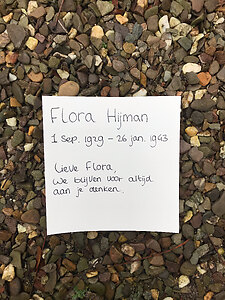 Flora Hijman
1 Sep. 1929 - 26 jan. 1943
Lieve Flora,
We blijven voor altijd
aan je denken.